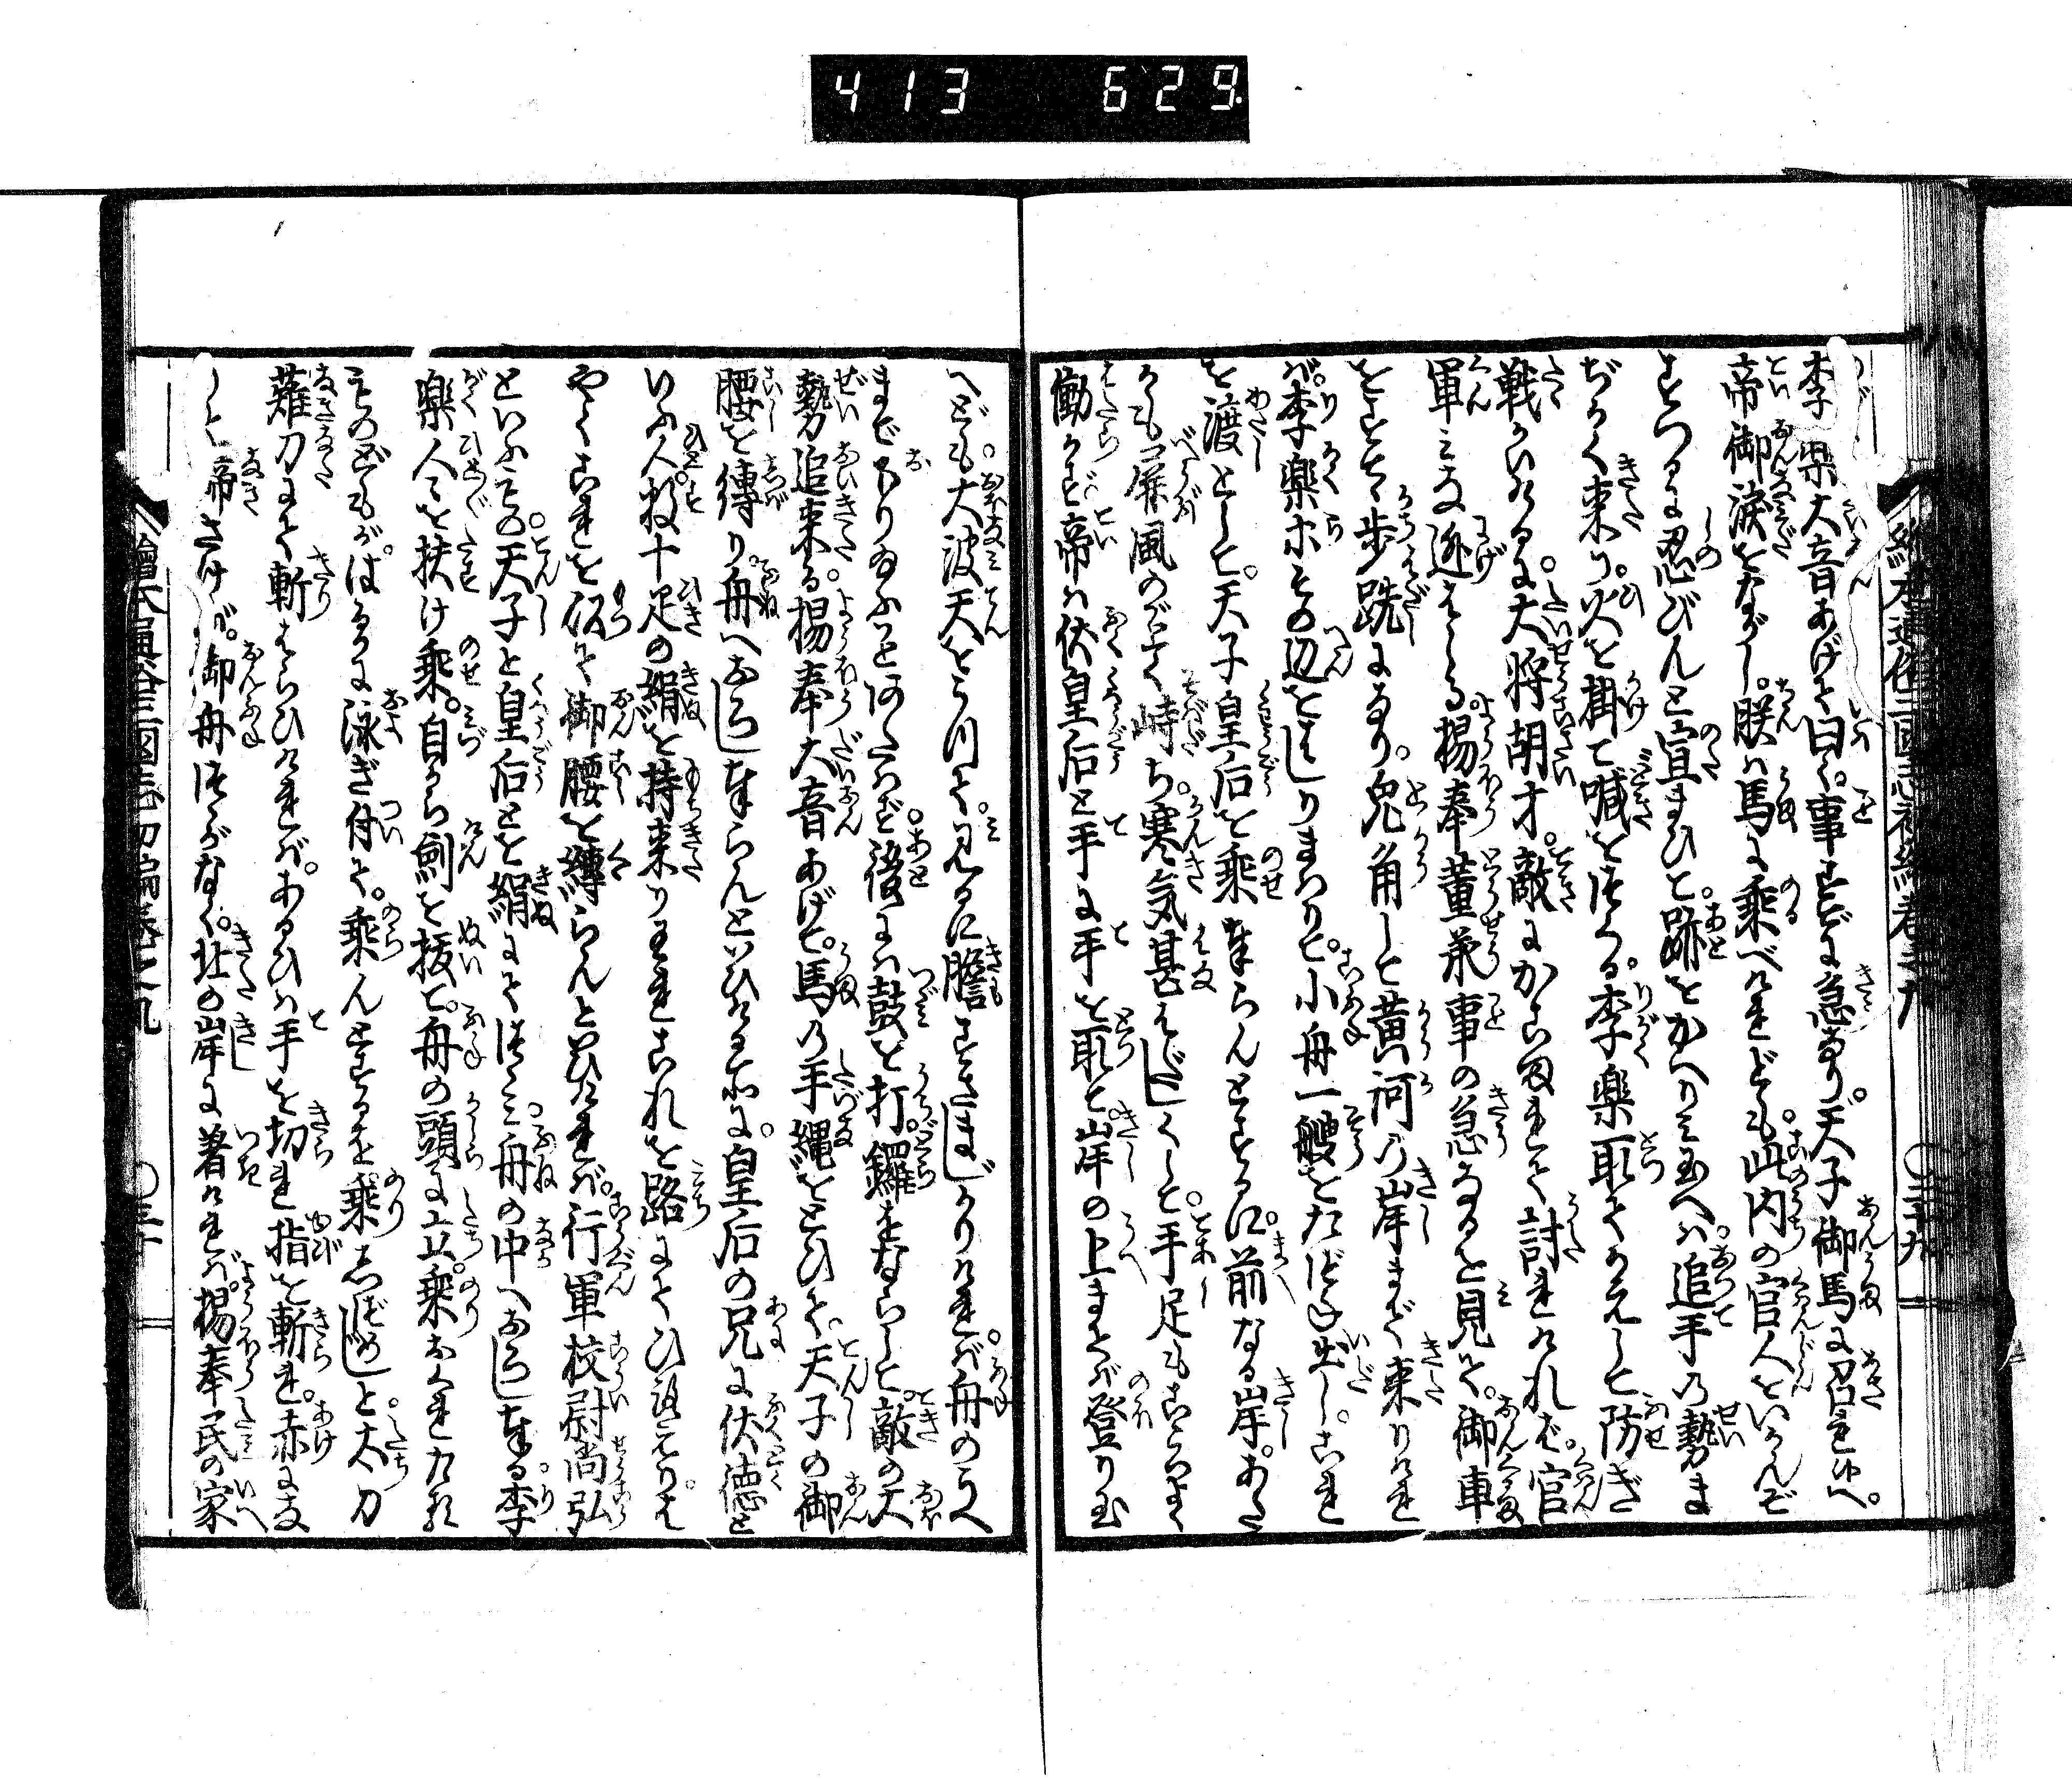 413 629
李楽大音あげて曰く。事すでに急なり。天子御馬に召され候へ。
帝御涙をながし。朕は馬に乗べけれども。此内の官人をいかんぞ
すつるに忍びんと宣まひて。跡をかへりみ玉へば。追手の勢ま
ぢかく来り。火を掛て喊をつくる。李楽取てかえして防ぎ
戦かいけるに。大将胡才。敵にかこまれて討れければ。官
軍みな逃はしる。楊奉董承事の急なるを見て。御車
をすて歩跣になり。兎角して黄河の岸まで来りけれ
ば。李楽ホその辺をはしりまはりて。小舟一艘をたづね出し。これ
を渡として。天子皇后を乗奉らんとするに。前なる岸。あた
かも屏風のごとく峙ち。寒気甚はだしくして。手足もこゞえて
働かず。帝は伏皇后と手に手を取て岸の上まで登り玉
へども。大波天をうつ川て。見るに膽すさまじかりければ。舟のうへ
までおり玉ふことあたはず。後には鼓を打。鑼をならして。敵の大
勢追来る。楊奉大音あげて。馬の手縄をとひて。天子の御
腰を縛り。舟へおろし奉らんといひける所に。皇后の兄に伏徳と
いふ人。数十疋の絹を持来り。われこれを路にてひろへり。は
やくこれを以て御腰を縛らんといひければ。行軍校尉尚弘
といふもの。天子と皇后とを絹にてつゝみ。舟の中へおろし奉る。李
楽人々を扶け乗。自から劍を抜て。舟の頭に立。乗おくれたる
ものどもが。はるかに泳ぎ付て。乗んとするを。乗しづめじと。太刀
薙刀にて斬はらひければ。あるひは手を切れ指を斬れ。赤に
帝さけば。御舟つゝがなく。北の岸に著ければ。楊奉民の家
繪本通俗三國志初編巻之九
三十